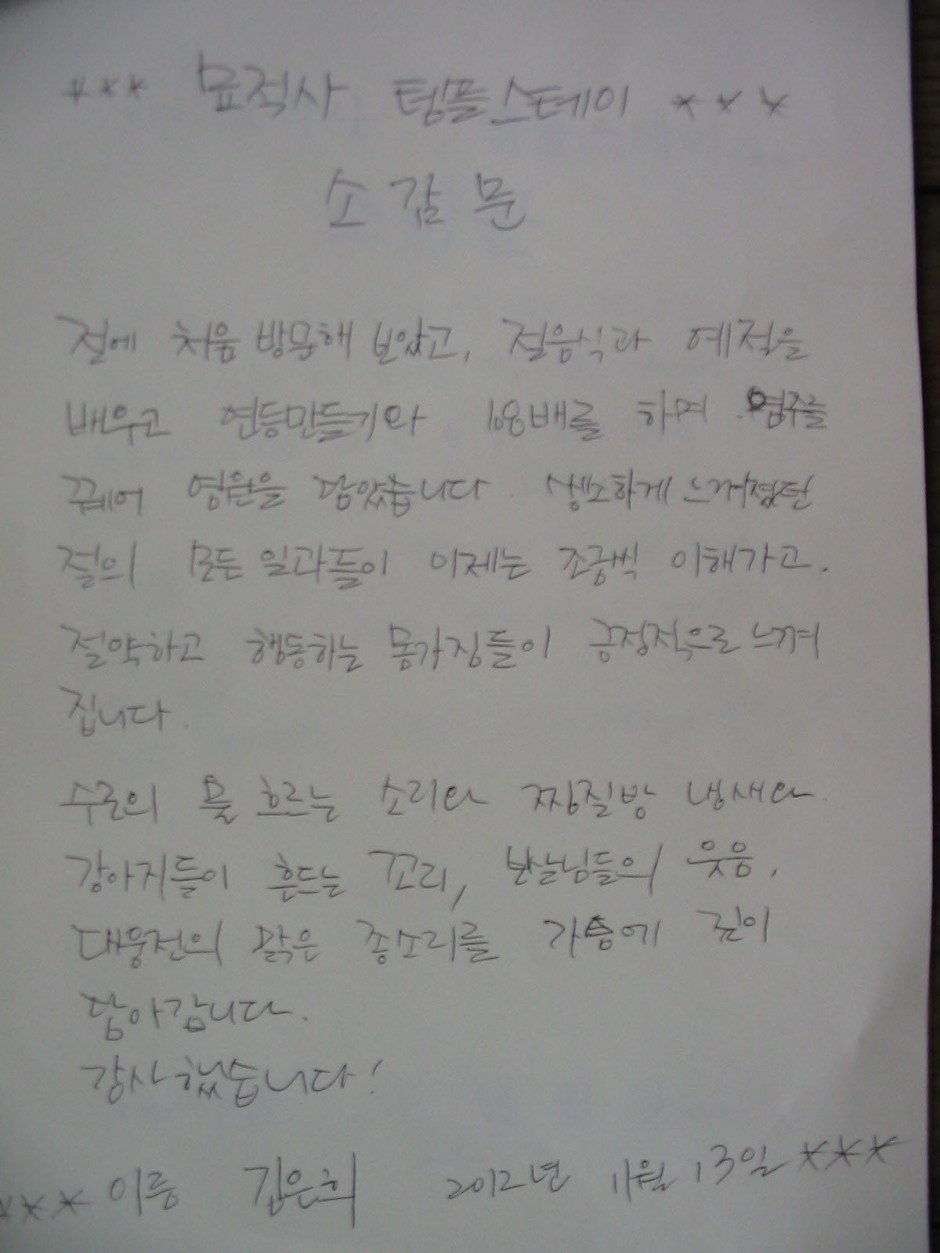 *** 묘적사 템플스테이 ***
소감문
절에 처음 방문해 보았고, 절음식과 예절을
배우고 연등만들기와 108배를 하며 염주를
꿰어 염원을 담았습니다. 생소하게 느껴졌던
절의 모든 일과들이 이제는 조금씩 이해가고,
절약하고 행동하는 몸가짐들이 긍정적으로 느껴
집니다.
수로의 물 흐르는 소리와 찜질방 냄새와
강아지들이 흔드는 꼬리, 보살님들의 웃음,
대웅전의 맑은 종소리를 가슴에 깊이
담아갑니다.
감사했습니다!
*** 이름 김은희 2012년 11월 13일 ***